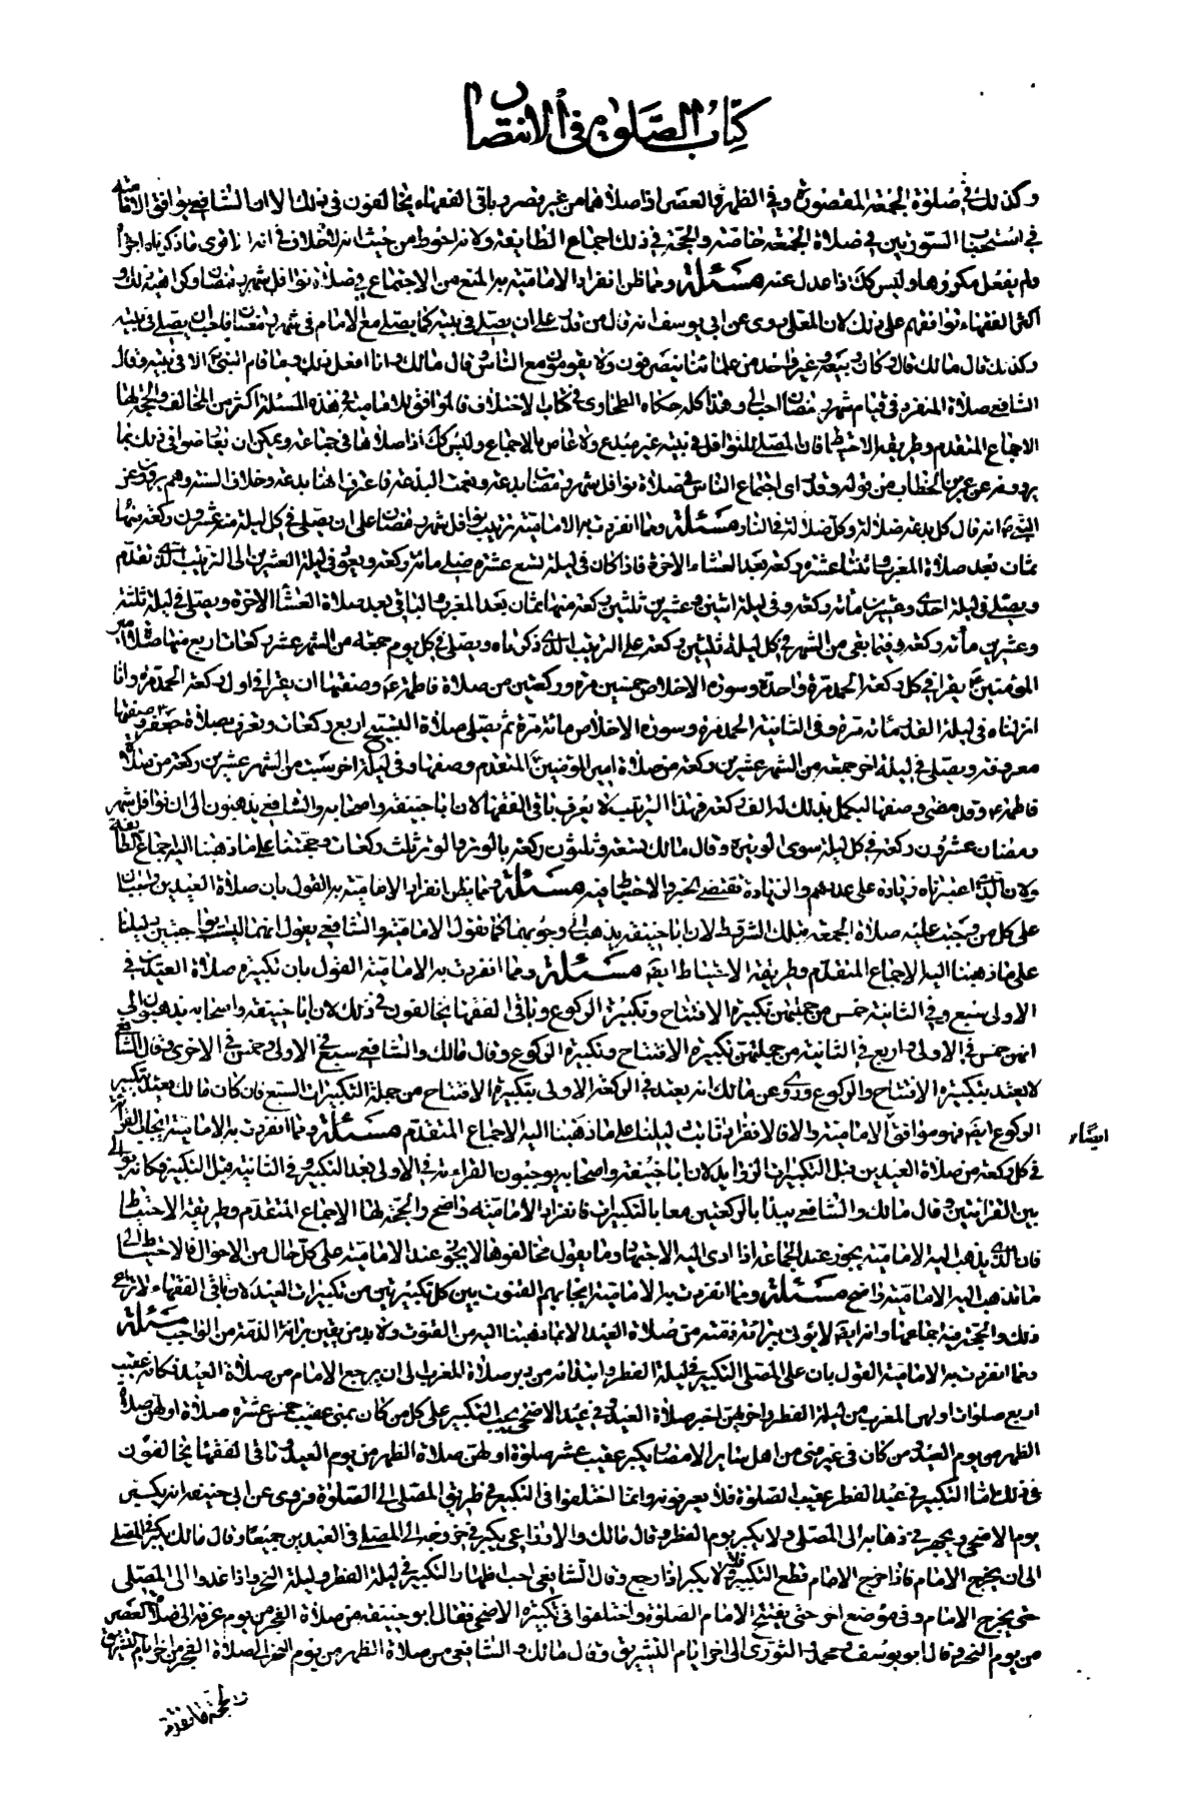 كتاب الصلوة في الانتصار
وكذلك في صلوة الجمعة المقصورة وفي الظهر والعصر اذا صلاهما من غير قصر وباقي الفقهاء يخالفون في ذلك الا ان الشافعي يوافق الامامية
في استحباب السورتين في صلاة الجمعة خاصة والحجة في ذلك اجماع الطايفة ولانه احوط من حيث انه لا خلاف في انه اذا قرى ما ذكرناه اجزأ
ولم يفعل مكروها وليس كك اذا عدل عنه مسئلة ومما ظن انفراد الامامية به المنع من الاجتماع في صلاة نوافل شهر رمضان وكراهية ذلك و
اكثر الفقهاء توافقهم على ذلك لان المعلى روى عن ابي يوسف انه قال من قدر على ان يصلي في بيته كما يصلي مع الامام في شهر رمضان فاحب ان يصلي في بيته
وكذلك قال مالك قال وكان ربيعة وغير واحد من علمائنا ينصرفون ولا يقومون مع الناس قال مالك وانا افعل ذلك وما قام النبي الا في بيته وقال
الشافعي صلاة المنفرد في قيام شهر رمضان احب الي وهذا كله حكاه الطحاوي في كتاب الاختلاف فالموافق للامامية في هذه المسئلة اكثر من المخالف والحجة لها
الاجماع المتقدم وطريقة الاحتياط فان المصلي للنوافل في بيته غير مبدع ولا عاص بالاجماع وليس كك اذا صلاها في جماعة ويمكن ان يعارضوا في ذلك بما
يروونه عن عمر بن الخطاب من قوله وقد راى اجتماع الناس في صلاة نوافل شهر رمضان بدعة ونعمت البدعة فاعترف انها بدعة وخلاف السنة وهم يروون عن
النبي انه قال كل بدعة ضلالة وكل ضلالة في النار مسئلة ومما انفردت به الامامية ترتيب نوافل شهر رمضان على ان يصلي في كل ليلة منه عشرون ركعة منها
ثمان بعد صلاة المغرب واثنتا عشرة ركعة بعد العشاء الاخرة فاذا كان في ليلة تسع عشرة صلى مائة ركعة ويعود في ليلة العشرين الى الترتيب الذي تقدم
ويصلي في ليلة احدى وعشرين مائة ركعة وفي ليلة اثنين وعشرين ثلثين ركعة منها ثمان بعد المغرب والباقي بعد صلاة العشاء الاخرة ويصلي في ليلة ثلثة
وعشرين مائة ركعة وفيما بقى من الشهر في كل ليلة ثلثين ركعة على الترتيب الذي ذكرناه ويصلي في كل يوم جمعة من الشهر عشر ركعات اربع منها صلاة امير
المؤمنين يقرا في كل ركعة الحمد مرة واحدة وسورة الاخلاص خمسين مرة وركعتين من صلاة فاطمة ع وصفتها ان يقرا في اول ركعة الحمد مرة وانا
انزلناه في ليلة القدر مائة مرة وفي الثانية الحمد مرة وسورة الاخلاص مائة مرة ثم يصلي صلاة التسبيح اربع ركعات وتعرف بصلاة جعفر وصفتها
معروفة ويصلي في ليلة اخر جمعة من الشهر عشرين ركعة من صلاة امير المؤمنين المتقدم وصفها وفي ليلة اخر سبت من الشهر عشرين ركعة من صلاة
فاطمة ع وقد مضى وصفها ليكمل بذلك له الف ركعة فهذا الترتيب لا يعرفه باقي الفقهاء لان ابا حنيفة واصحابه والشافعي يذهبون الى ان نوافل شهر
رمضان عشرون ركعة في كل ليلة سوى الوتر وقال مالك تسعة وثلثون ركعة بالوتر والوتر ثلث ركعات وحجتنا على ما ذهبنا اليه اجماع الطائفة
ولان الذي اعتبرناه زيادة على عددهم والزيادة تقتضي الخير والاحتياط فيه مسئلة ومما يظن انفراد الامامية به القول بان صلاة العيدين واجبتان
على كل من وجبت عليه صلاة الجمعة بتلك الشرايط لان ابا حنيفة يذهب الى وجوبهما كما تقول الامامية والشافعي يقول انهما ليستا بواجبتين دليلنا
على ما ذهبنا اليه الاجماع المتقدم وطريقة الاحتياط ايضا مسئلة ومما انفردت به الامامية القول بان تكبيره صلاة العيد في
الاولى سبع وفي الثانية خمس من جملتهن تكبيرة الافتتاح وتكبيرة الركوع وباقي الفقهاء يخالفون في ذلك لان ابا حنيفة واصحابه يذهبون الى
انهن خمس في الاولى واربع في الثانية من جملتهن تكبيرة الافتتاح وتكبيرة الركوع وقال مالك والشافعي سبع في الاولى وخمس في الاخرى وقال الشافعي
لا يعتد بتكبيرة الافتتاح والركوع وروى عن مالك انه يعتد في الركعة الاولى بتكبيرة الافتتاح من جملة التكبيرات السبع فان كان مالك يعتد بتكبير
الركوع ايضا فهو موافق للامامية والا فالانفراد ثابت دليلنا على ما ذهبنا اليه الاجماع المتقدم مسئلة ومما انفردت به الامامية ايجاب القراءة
في كل ركعة من صلاة العيدين قبل التكبيرات الزوايد لان ابا حنيفة واصحابه يوجبون القراءة في الاولى بعد التكبير وفي الثانية قبل التكبير فكانه يوالي
بين القرائتين وقال مالك والشافعي يبدا بالركعتين معا بالتكبيرات فانفراد الامامية واضح والحجة لها الاجماع المتقدم وطريقة الاحتياط
فان الذي يذهب اليه الامامية يجوز عند الجماعة اذا ادى اليه الاجتهاد وما يقول مخالفوها لا يجوز عند الامامية على كل حال من الاحوال فالاحتياط الى
ما تذهب اليه الامامية واضح مسئلة ومما انفردت به الامامية ايجابهم القنوت بين كل تكبيرتين من تكبيرات العيد لان باقي الفقهاء لا يراعى
ذلك والحجة فيه اجماعها وانه ايضا لا يؤتى ببرائة ذمته من صلاة العيد الا بما ذهبنا اليه من القنوت ولا بد من يقين براءة الذمة من الواجب مسئلة
ومما انفردت به الامامية القول بان على المصلي التكبير في ليلة الفطر وابتداءه من دبر صلاة المغرب الى ان يرجع الامام من صلاة العيد فكانه عقيب
اربع صلوات اولهن المغرب من ليلة الفطر واخرهن اخر صلاة العيد وفي عيد الاضحى يجب التكبير على كل من كان بمنى عقيب خمس عشرة صلاة اولهن صلاة
الظهر من يوم العيد ومن كان في غير منى من اهل ساير الامصار يكبر عقيب عشر صلوة اولهن صلاة الظهر من يوم العيد وباقي الفقهاء يخالفون
في ذلك اما التكبير في عيد الفطر عقيب الصلوة فلا يعرفونه وانما اختلفوا في التكبير في طريق المصلى الى الصلوة فروى عن ابي حنيفة انه يكبر
يوم الاضحى ويجهر في ذهابه الى المصلى ولا يكبر يوم الفطر وقال مالك والاوزاعي يكبر في خروجه الى المصلى في العيدين جميعا وقال مالك يكبر في المصلى
الى ان يخرج الامام فاذا خرج الامام قطع التكبير ولا يكبر اذا رجع وقال الشافعي احب اظهار التكبير في ليلة الفطر وليلة النحر واذا غدوا الى المصلى
حتى يخرج الامام وفي موضع اخر حتى يفتتح الامام الصلوة واختلفوا في تكبيره الاضحى فقال ابو حنيفة من صلاة الفجر من يوم عرفة الى صلاة العصر
من يوم النحر وقال ابو يوسف ومحمد والثوري الى اخر ايام التشريق وقال مالك والشافعي من صلاة الظهر من يوم النحر الى صلاة الفجر من اخر ايام التشريق